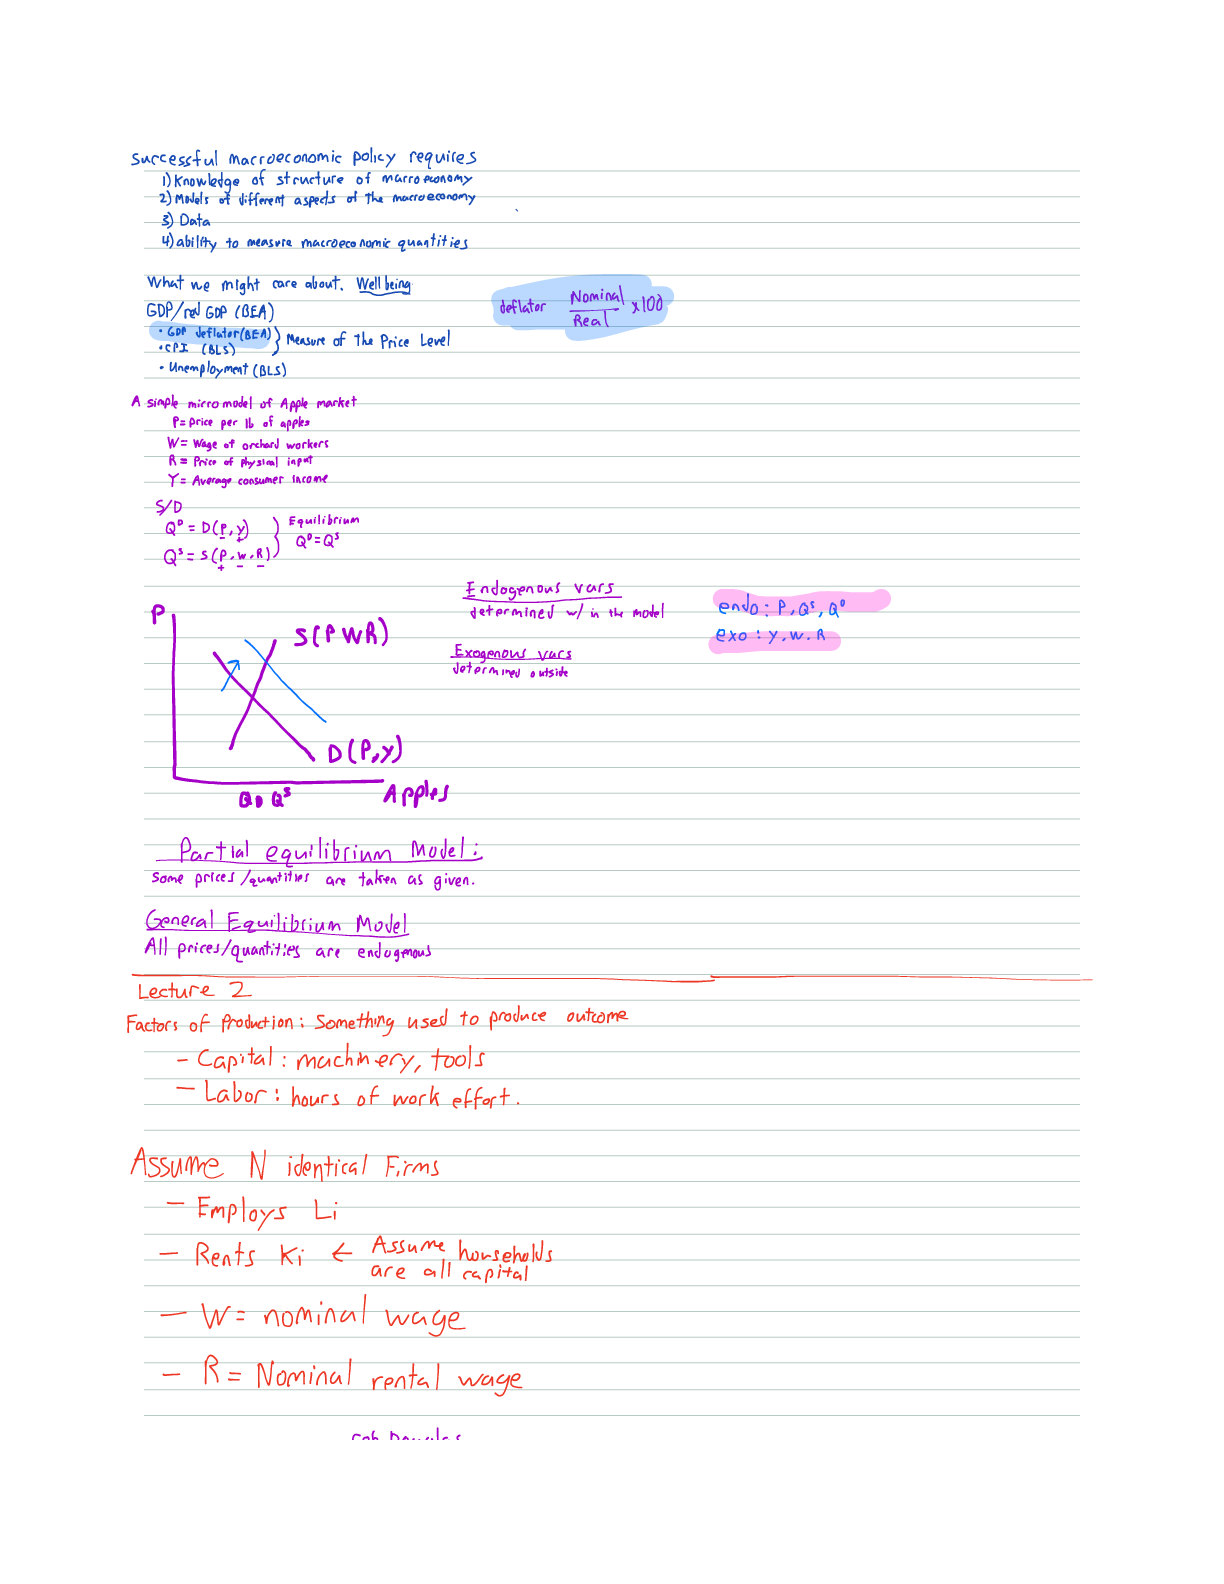 Successful macroeconomic policy requires
1) Knowledge of structure of macroeconomy
2) Models of different aspects of the macroeconomy
3) Data
4) ability to measure macroeconomic quantities
What we might care about. Well being
GDP/real GDP (BEA)
• GDP deflator (BEA)
• CPI (BLS)
} Measure of The Price Level
• Unemployment (BLS)
deflator Nominal/Real x100
A simple micro model of Apple market
P = Price per lb of apples
W = Wage of orchard workers
R = Price of physical input
Y = Average consumer income
S/D
Qᴰ = D(P, Y)
- +
Qˢ = S(P, W, R)
+ - -
} Equilibrium
Qᴰ = Qˢ
Endogenous vars
determined w/ in the model
Exogenous vars
determined outside
endo: P, Qˢ, Qᴰ
exo: Y, W, R
P
S(P W R)
D(P, Y)
QD Qˢ
Apples
Partial equilibrium Model:
Some prices/quantities are taken as given.
General Equilibrium Model
All prices/quantities are endogenous
Lecture 2
Factors of Production: Something used to produce outcome
- Capital: machinery, tools
- Labor: hours of work effort.
Assume N identical Firms
- Employs Li
- Rents Ki ← Assume households
are all capital
- W = nominal wage
- R = Nominal rental wage